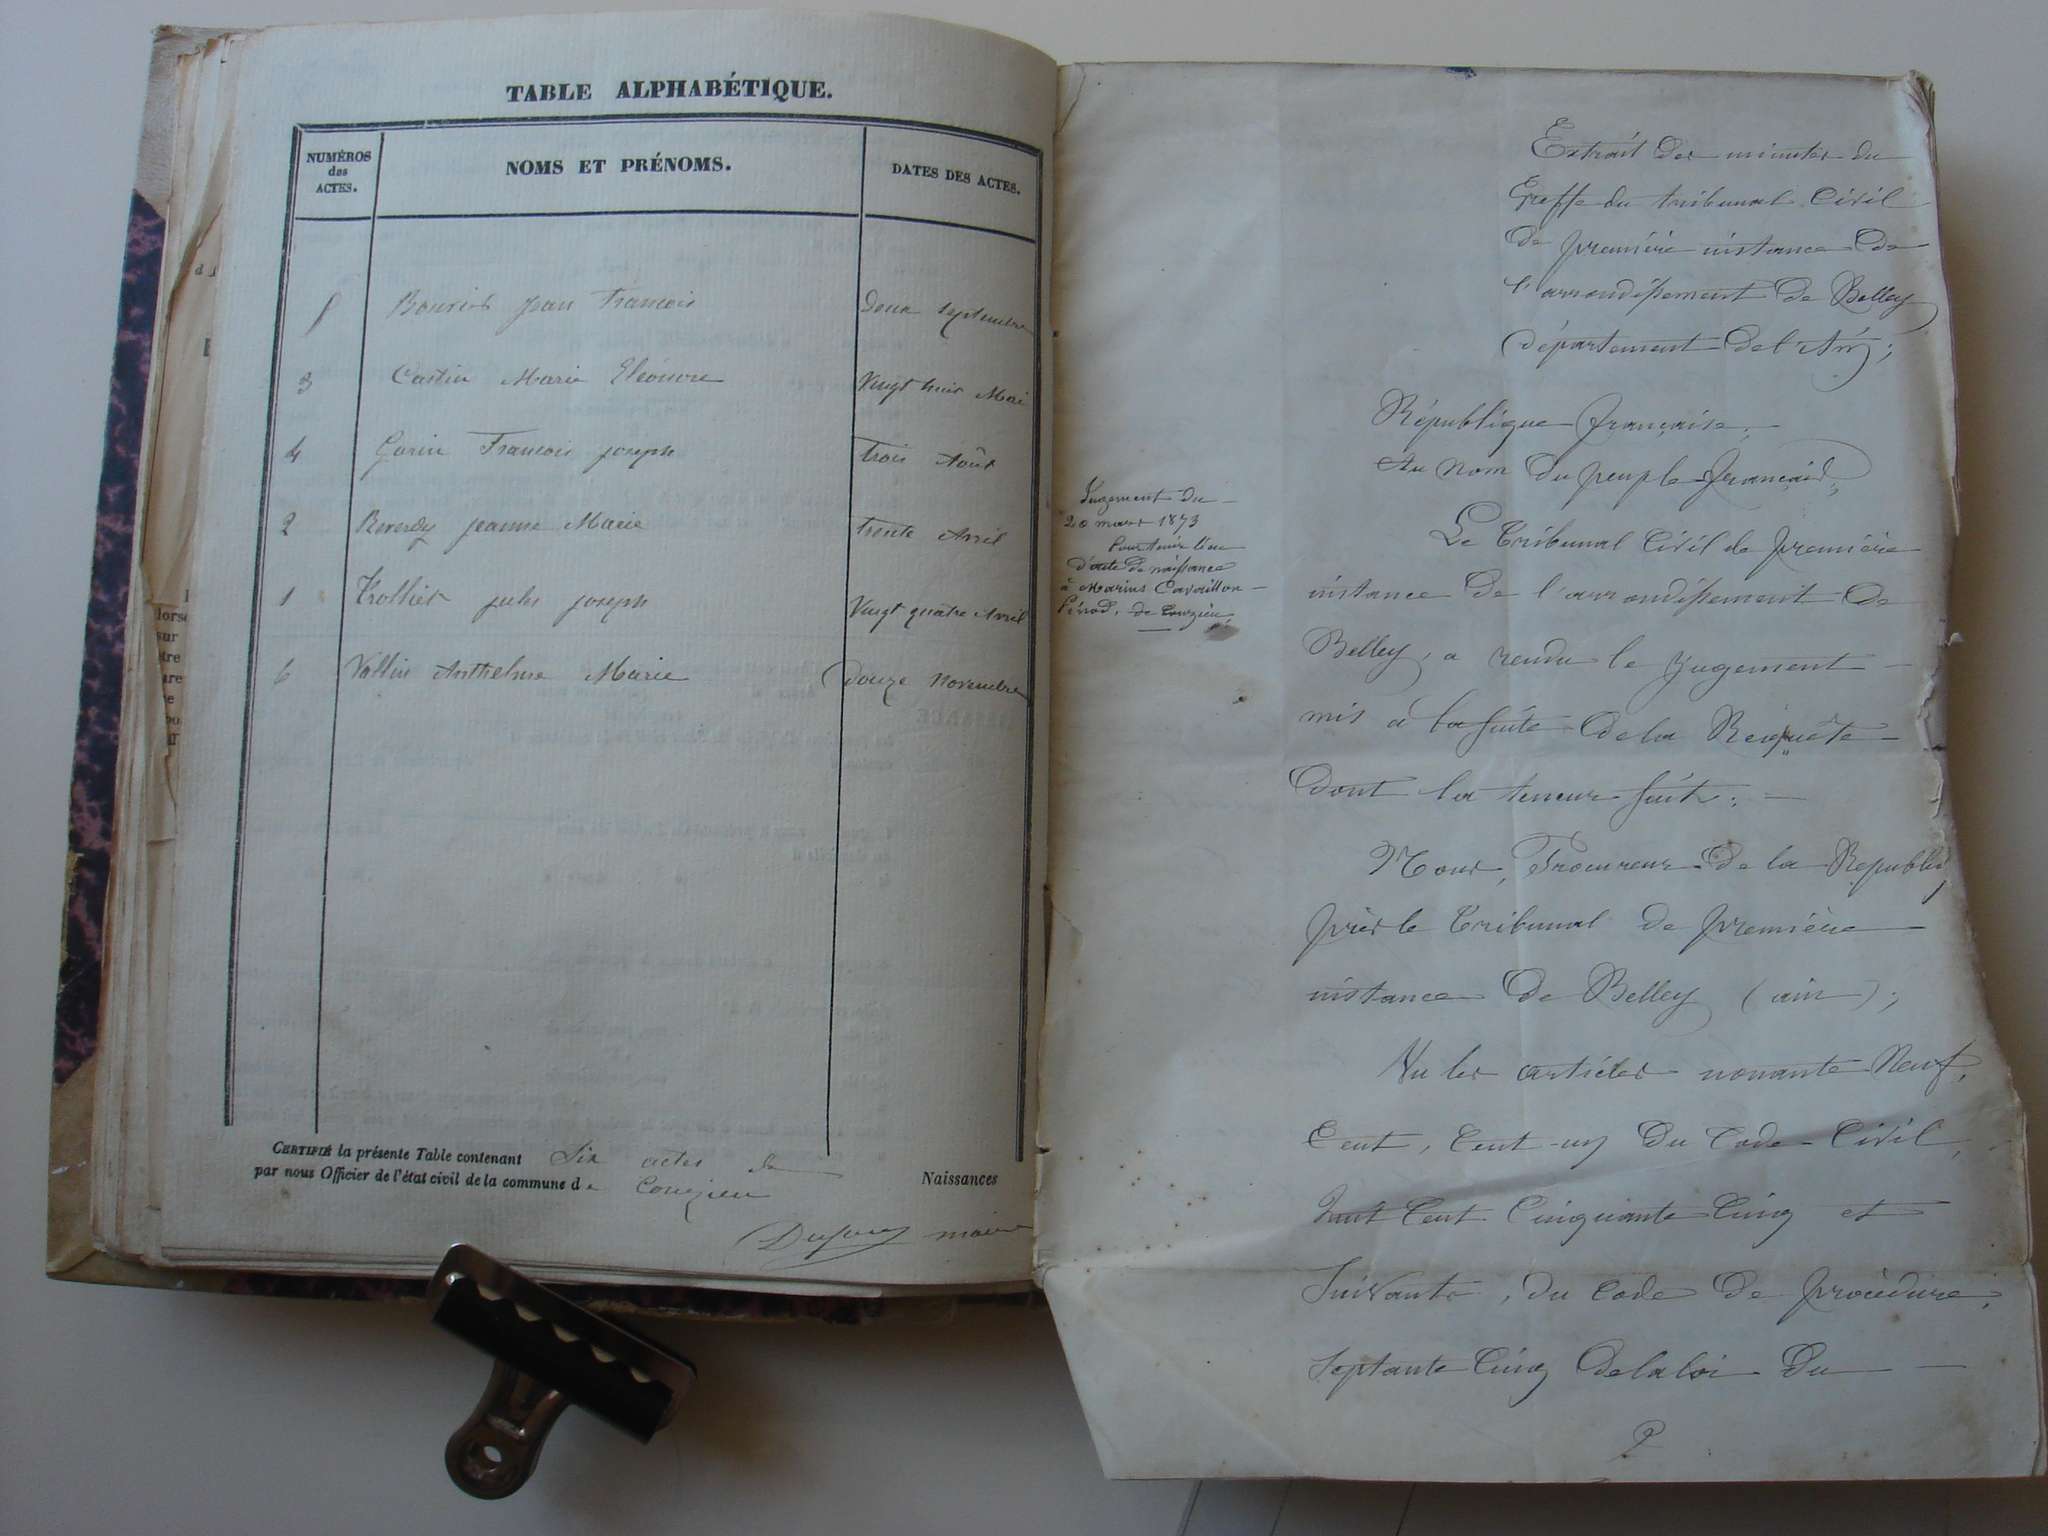 TABLE ALPHABÉTIQUE.
NUMÉROS des ACTES.
NOMS ET PRÉNOMS.
DATES DES ACTES.
Jean François Deux Septembre
3 Castin Marie Eléonore Vingt huit Mai
4 Garin François joseph trois Août
2 Reverdy jeanne Marie trente Avril
1 Trollier jules joseph Vingt quatre Avril
6 Vallin Anthelme Marie Douze Novembre
CERTIFIÉ la présente Table contenant Six actes de Naissances
par nous Officier de l'état civil de la commune de Conzieu
Dupuy maire
Extrait des minutes du
Greffe du tribunal Civil
de première instance de
l'arrondissement de Belley
département de l'Ain;
République française,
Au nom du peuple français,
Jugement du
20 mars 1873
pour tenir lieu
d'acte de naissance
à Marius Cavaillon
Pérod, de Conzieu.
Le Tribunal Civil de première
instance de l'arrondissement de
Belley, a rendu le Jugement
mis à la suite de la Requête
dont la teneur suit:
Nous, Procureur de la Républiq
près le Tribunal de première
instance de Belley (ain);
Vu les articles nonante Neuf,
Cent, Cent-un du Code Civil,
huit Cent Cinquante Cinq et
Suivants, du Code de procédure,
Septante Cinq de la loi du